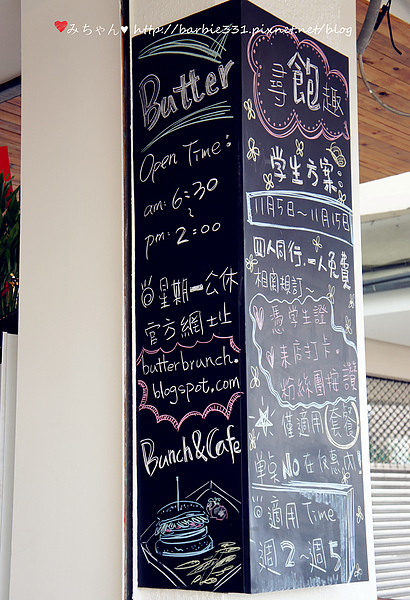 みちゃん♥ http://barbie331.pixnet.net/blog
Butter
Open Time:
am: 6:30
~
pm: 2:00
尚星期一公休
官方網址
butterbrunch.
blogspot.com
Bunch&Cafe
尋飽趣
学生方案:
11月5日~11月15日
四人同行,一人免費
相關規訂~
憑学生證
来店打卡.
粉絲團按讚
僅適用套餐
單点NO在优惠內
尚適用Time
週2~週5